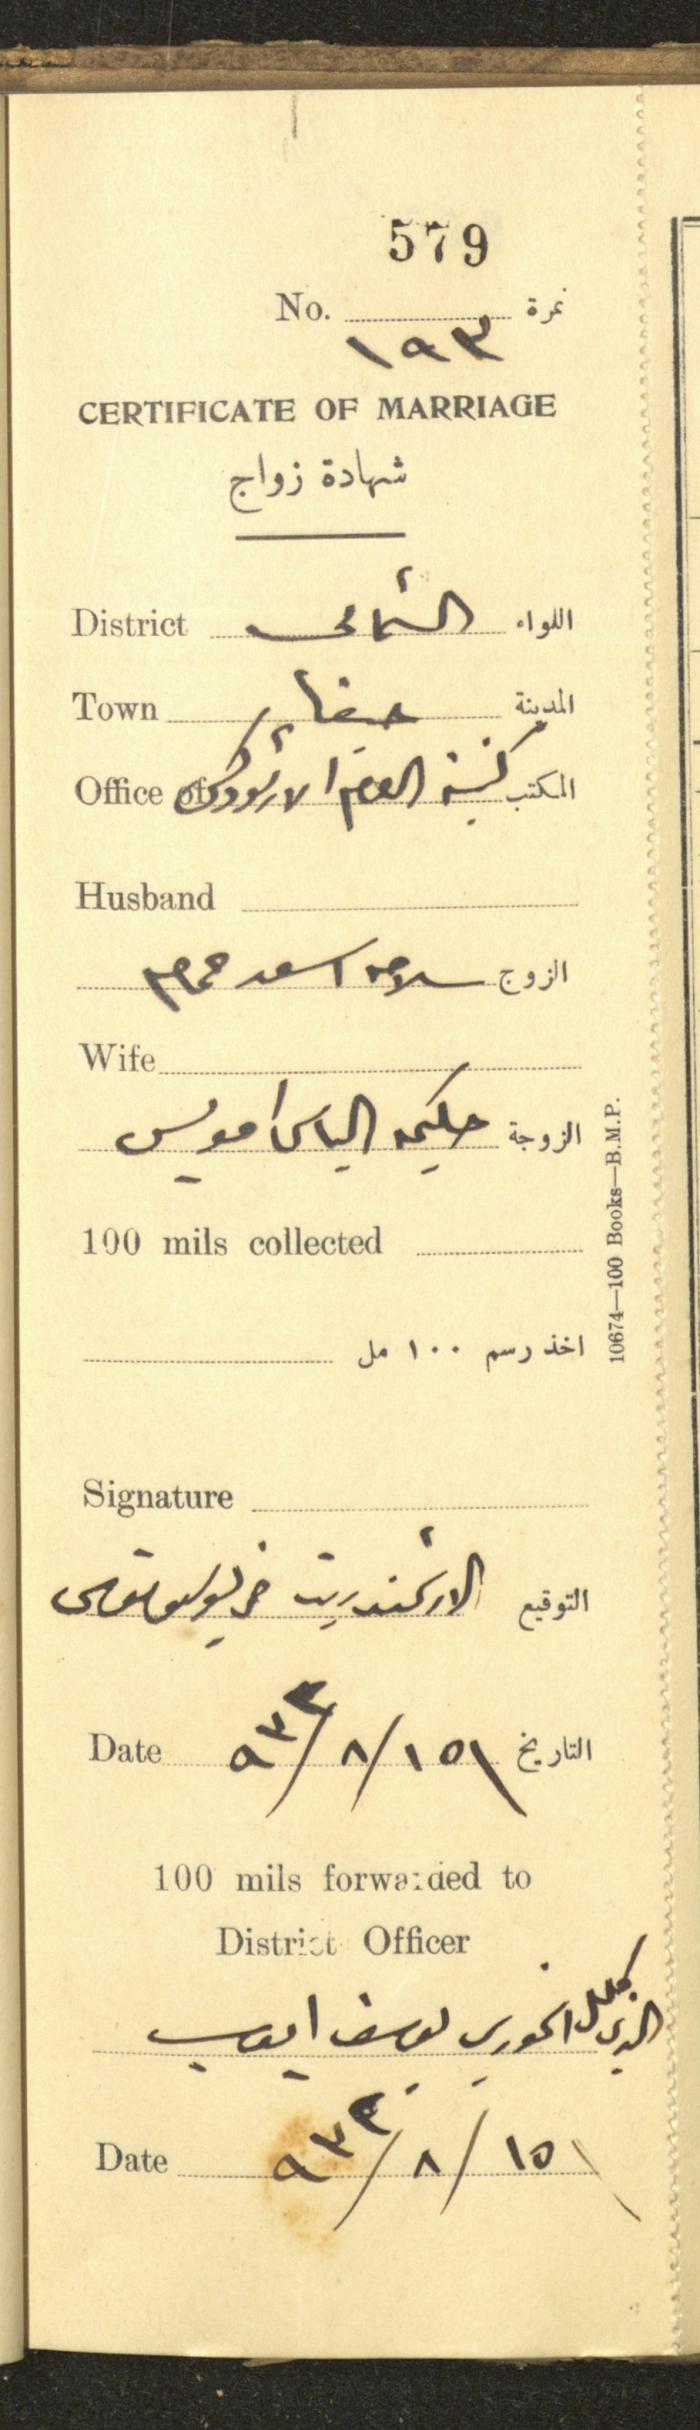 579
No. نمرة
١٩٣
CERTIFICATE OF MARRIAGE
شهادة زواج
District الشمالي اللواء
Town حيفا المدينة
Office of كنيسة الروم الارثوذكس المكتب
Husband
الزوج سلامه اسعد
Wife
الزوجة حكيمه الياس
100 mils collected
اخذ رسم ١٠٠ مل
Signature
التوقيع الارشمندريت
Date ١٥/٨/٩٣٣ التاريخ
100 mils forwarded to
District Officer
الخوري يوسف ايوب
Date ١٥/٨/٩٣٣
10674—100 Books—B.M.P.